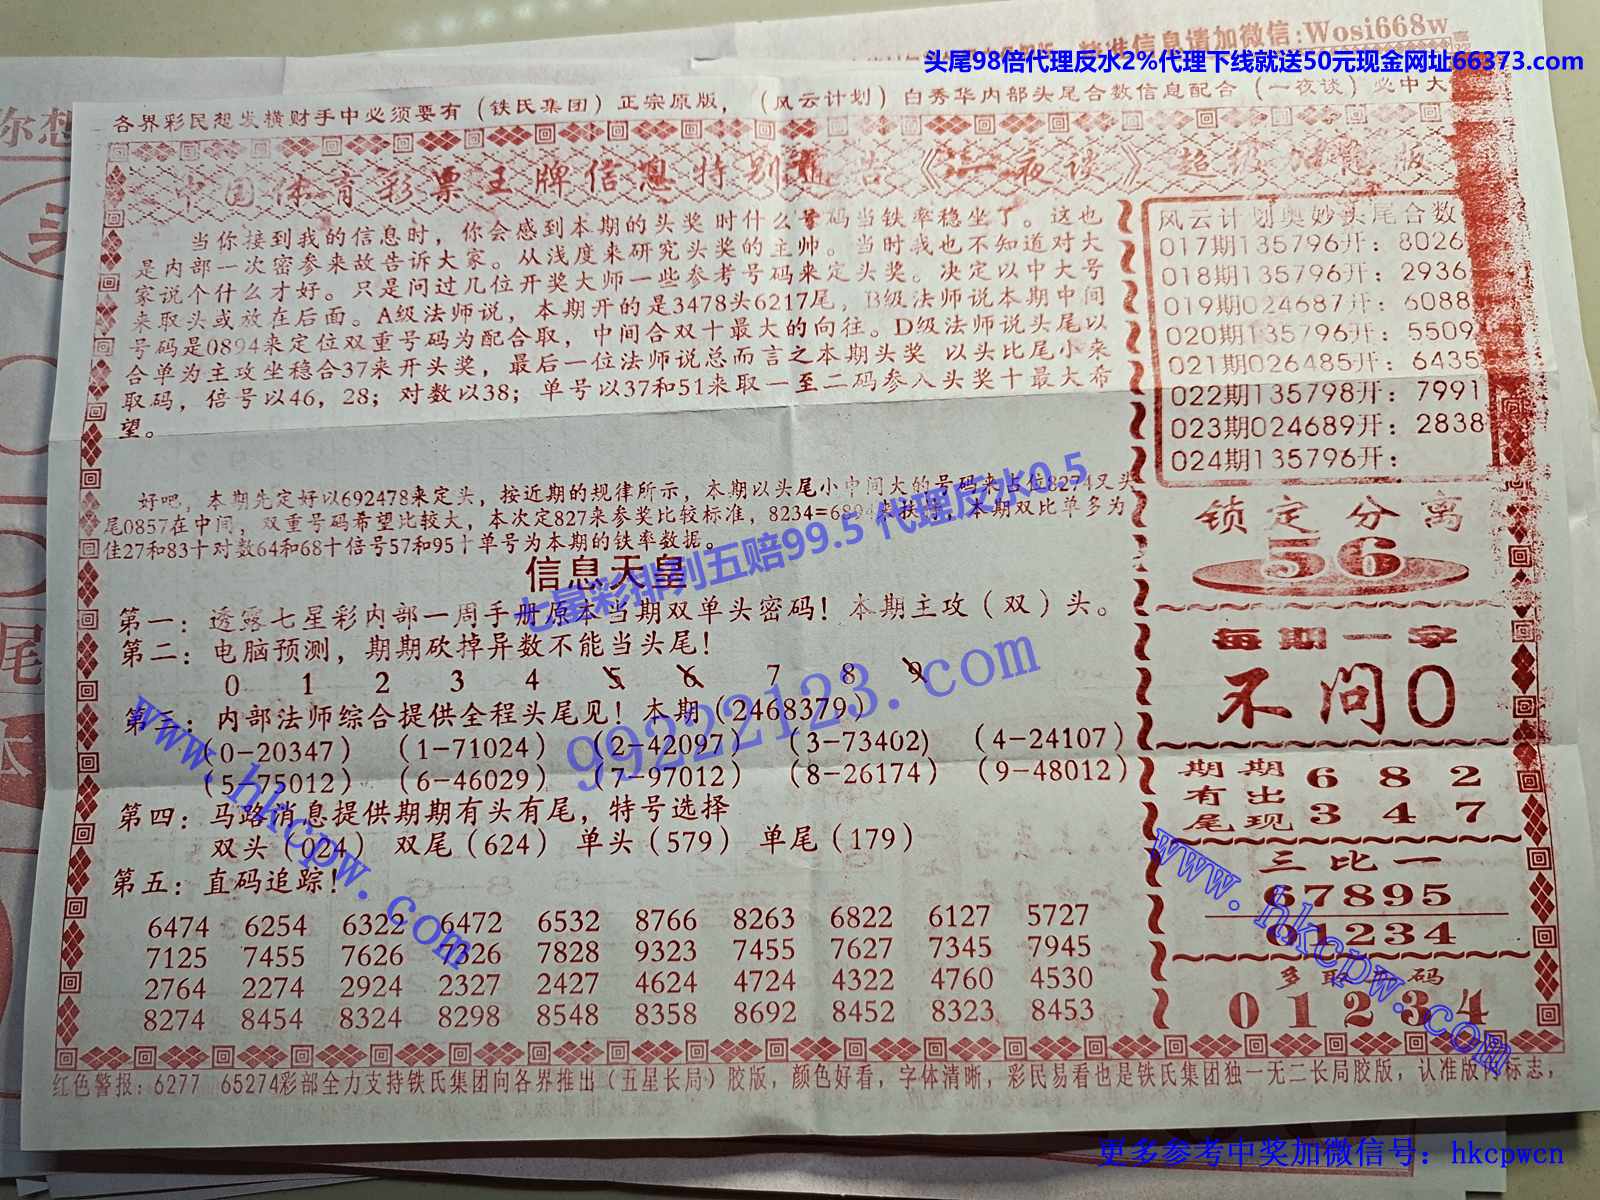 精准信息请加微信:Wosi668w
头尾98倍代理反水2%代理下线就送50元现金网址66373.com
各界彩民想发横财手中必须要有（铁氏集团）正宗原版，（风云计划）白秀华内部头尾合数信息配合（一夜谈）必中大
中国体育彩票王牌信息特别通告《一夜谈》超级加急版
当你接到我的信息时，你会感到本期的头奖时什么号码当铁率稳坐了。这也
是内部一次密参来故告诉大家。从浅度来研究头奖的主帅。当时我也不知道对大
家说个什么才好。只是问过几位开奖大师一些参考号码来定头奖。决定以中大号
来取头或放在后面。A级法师说，本期开的是3478头6217尾，B级法师说本期中间
号码是0894来定位双重号码为配合取，中间合双十最大的向往。D级法师说头尾以
合单为主攻坐稳合37来开头奖，最后一位法师说总而言之本期头奖 以头比尾小来
取码，倍号以46，28；对数以38；单号以37和51来取一至二码参入头奖十最大希
望。
好吧，本期先定好以692478来定头，按近期的规律所示，本期以头尾小中间大的号码来占位8274又头
尾0857在中间，双重号码希望比较大，本次定827来参奖比较标准，8234=6894来扶好，本期双比单多为
佳27和83十对数64和68十倍号57和95十单号为本期的铁率数据。
信息天皇
第一：透露七星彩内部一周手册原本当期双单头密码！本期主攻（双）头。
第二：电脑预测，期期砍掉异数不能当头尾！
0 1 2 3 4 5 6 7 8 9
第三：内部法师综合提供全程头尾见！本期（2468379）
（0-20347）（1-71024）（2-42097）（3-73402）（4-24107）
（5-75012）（6-46029）（7-97012）（8-26174）（9-48012）
第四：马路消息提供期期有头有尾，特号选择
双头（024） 双尾（624） 单头（579） 单尾（179）
第五：直码追踪！
6474 6254 6322 6472 6532 8766 8263 6822 6127 5727
7125 7455 7626 7326 7828 9323 7455 7627 7345 7945
2764 2274 2924 2327 2427 4624 4724 4322 4760 4530
8274 8454 8324 8298 8548 8358 8692 8452 8323 8453
风云计划奥妙头尾合数
017期135796开：8026
018期135796开：2936
019期024687开：6088
020期135796开：5509
021期026485开：6435
022期135798开：7991
023期024689开：2838
024期135796开：
锁定分离
56
每期一字
不问0
期期 6 8 2
有出
尾现 3 4 7
三比一
67895
01234
多取 码
01234
红色警报：6277 65274彩部全力支持铁氏集团向各界推出（五星长局）胶版，颜色好看，字体清晰，彩民易看也是铁氏集团独一无二长局胶版，认准版内标志，
七星彩排列五赔99.5 代理反水0.5
99222123.com
www.hkcpw.com
www.hkcpw.com
更多参考中奖加微信号：hkcpwcn
你想
头
尾
本